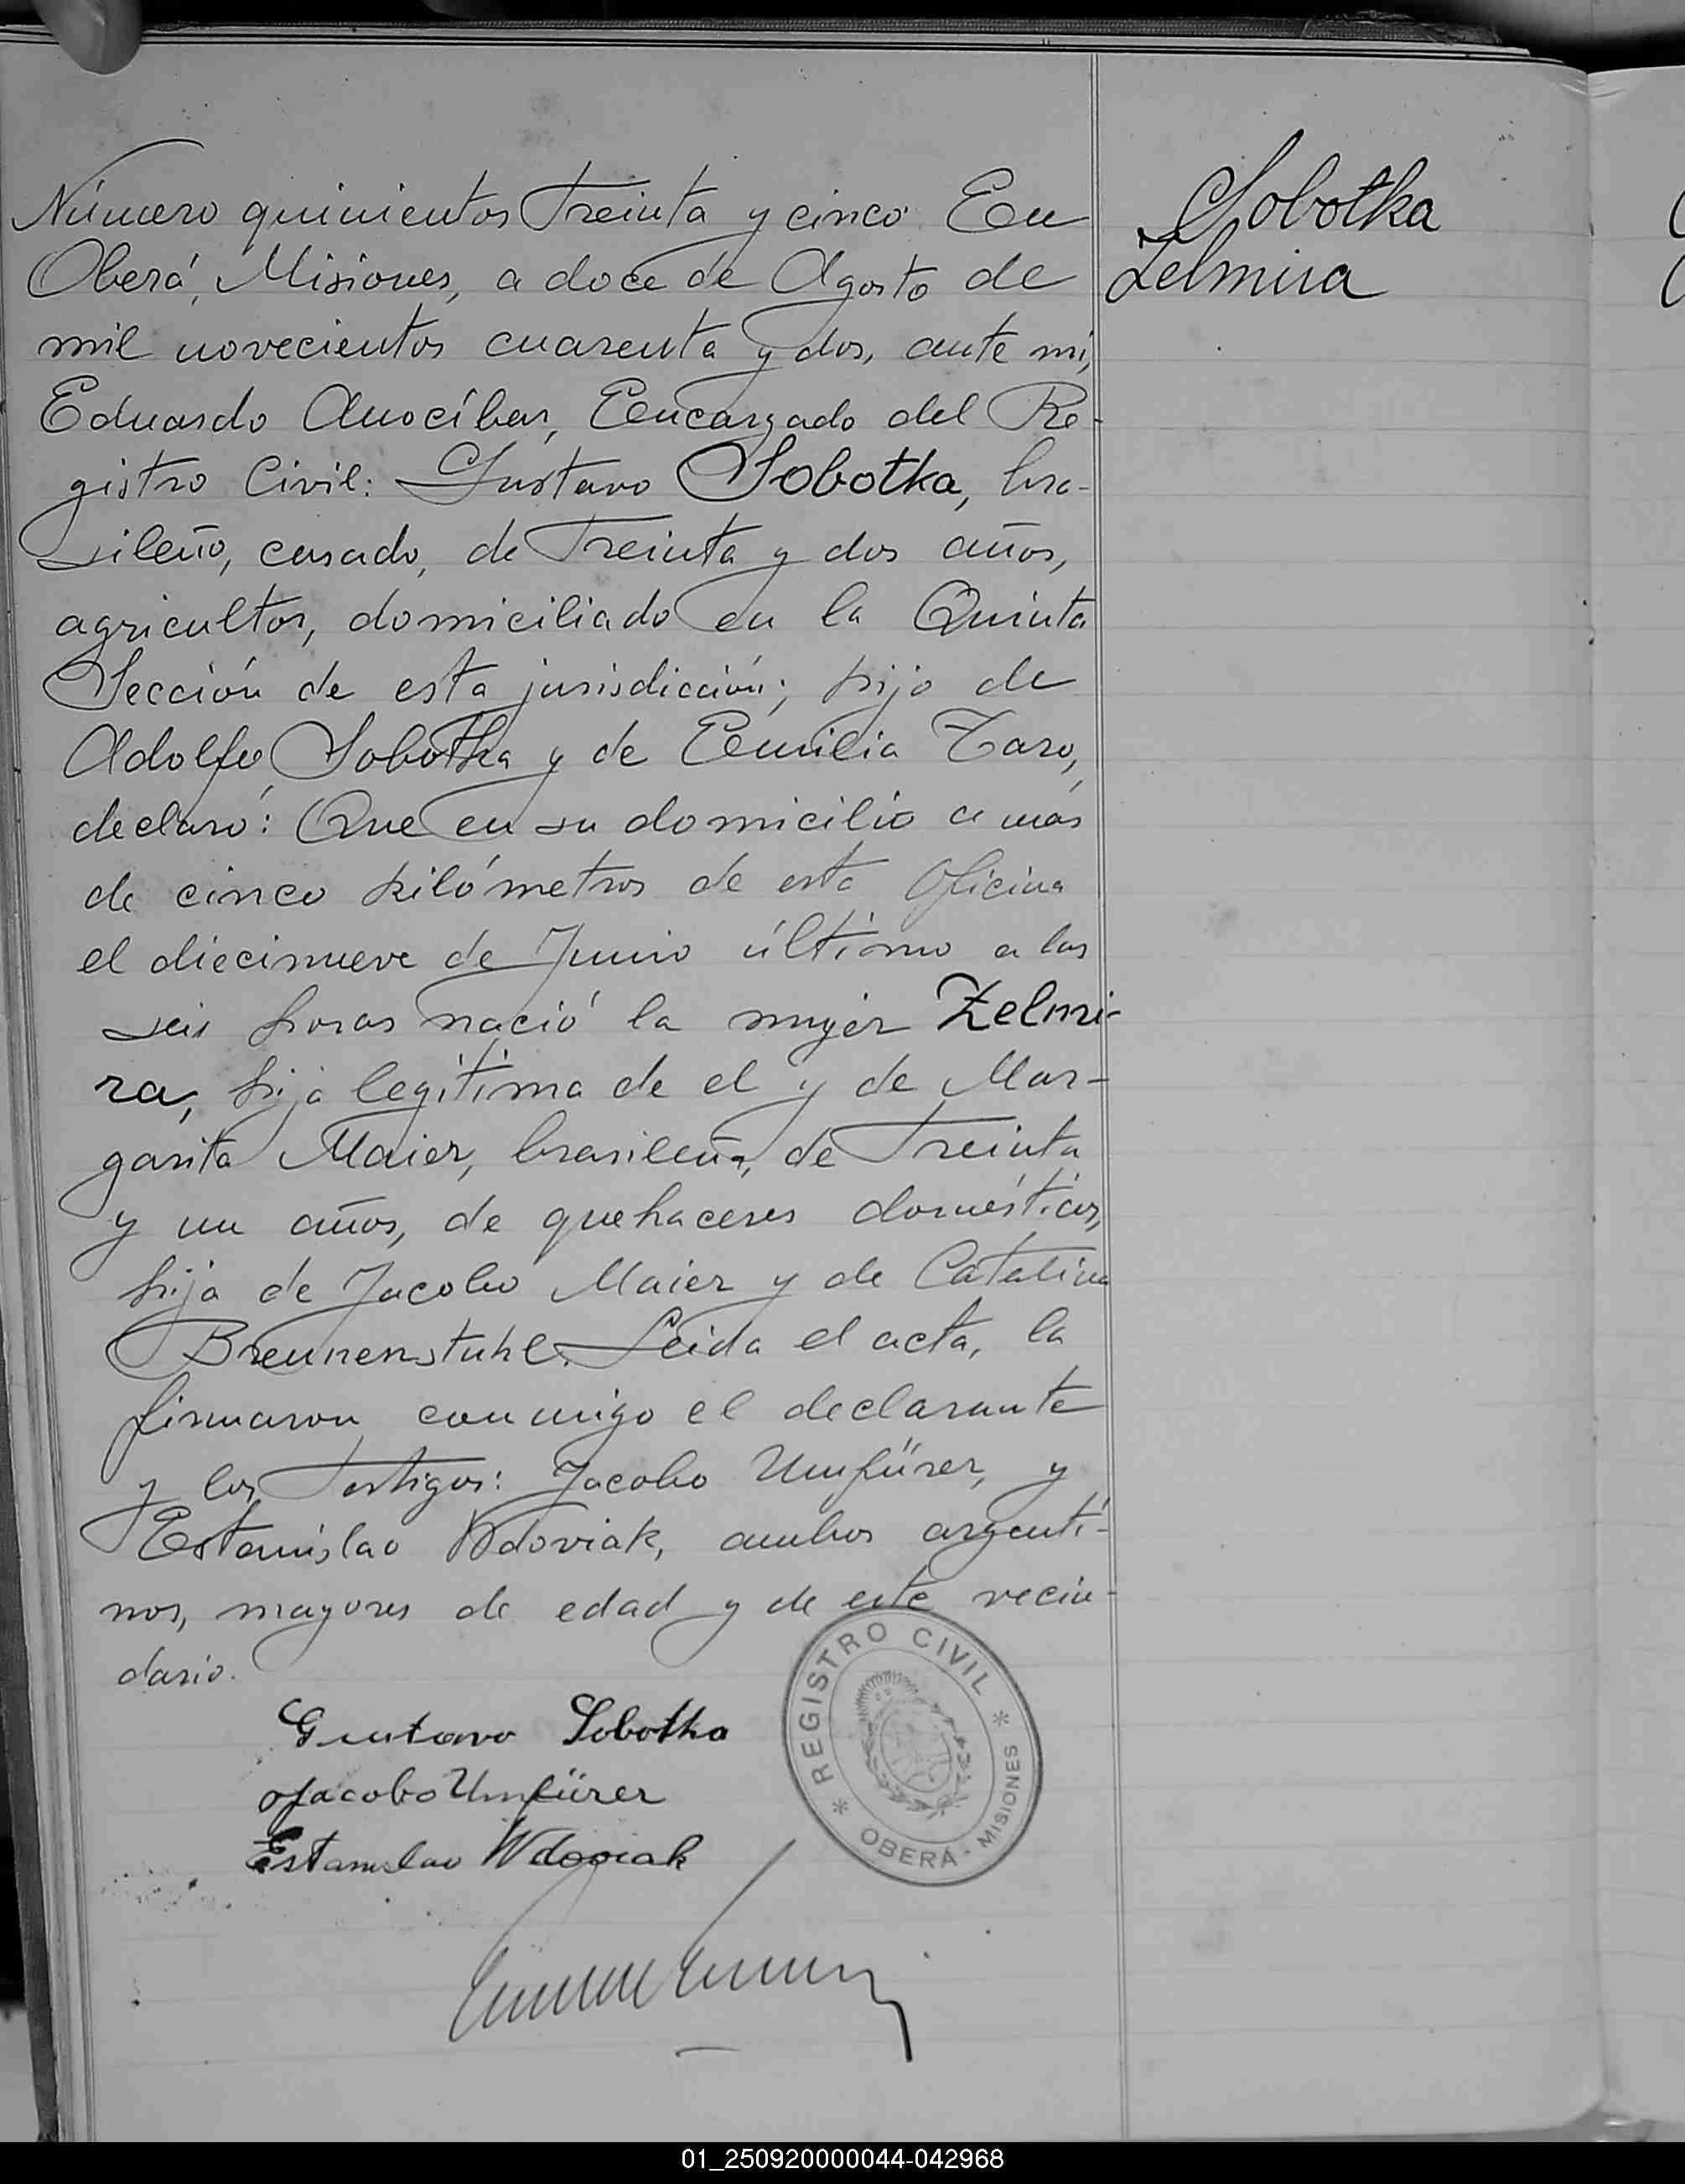 Número quinientos Treinta y cinco En
Oberá, Misiones, a doce de Agosto de
mil novecientos cuarenta y dos, ante mí,
Eduardo Anocíbar, Encargado del Re-
gistro Civil: Gustavo Sobotka, bra-
sileño, casado, de Treinta y dos años,
agricultor, domiciliado en la Quinta
Sección de esta jurisdicción; hijo de
Adolfo Sobotka y de Emilia
declaró: Que en su domicilio a más
de cinco kilómetros de esta Oficina
el diecinueve de Junio último a las
seis horas nació la mujer Zelmi-
ra, hija legítima de el y de Mar-
garita Maier, brasileña, de Treinta
y un años, de quehaceres domésticos,
hija de Jacobo Maier y de Catalina
Brennenstuhl. Leida el acta, la
firmaron conmigo el declarante
y los Testigos: Jacobo Umfürer, y
Estanislao Wdoviak, ambos argenti-
nos, mayores de edad y de este vecin-
dario.
Sobotka
Zelmira
Gustavo Sobotka
Jacobo Umfürer
Estanislao Wdoviak
REGISTRO CIVIL
* OBERÁ - MISIONES *
01_250920000044-042968